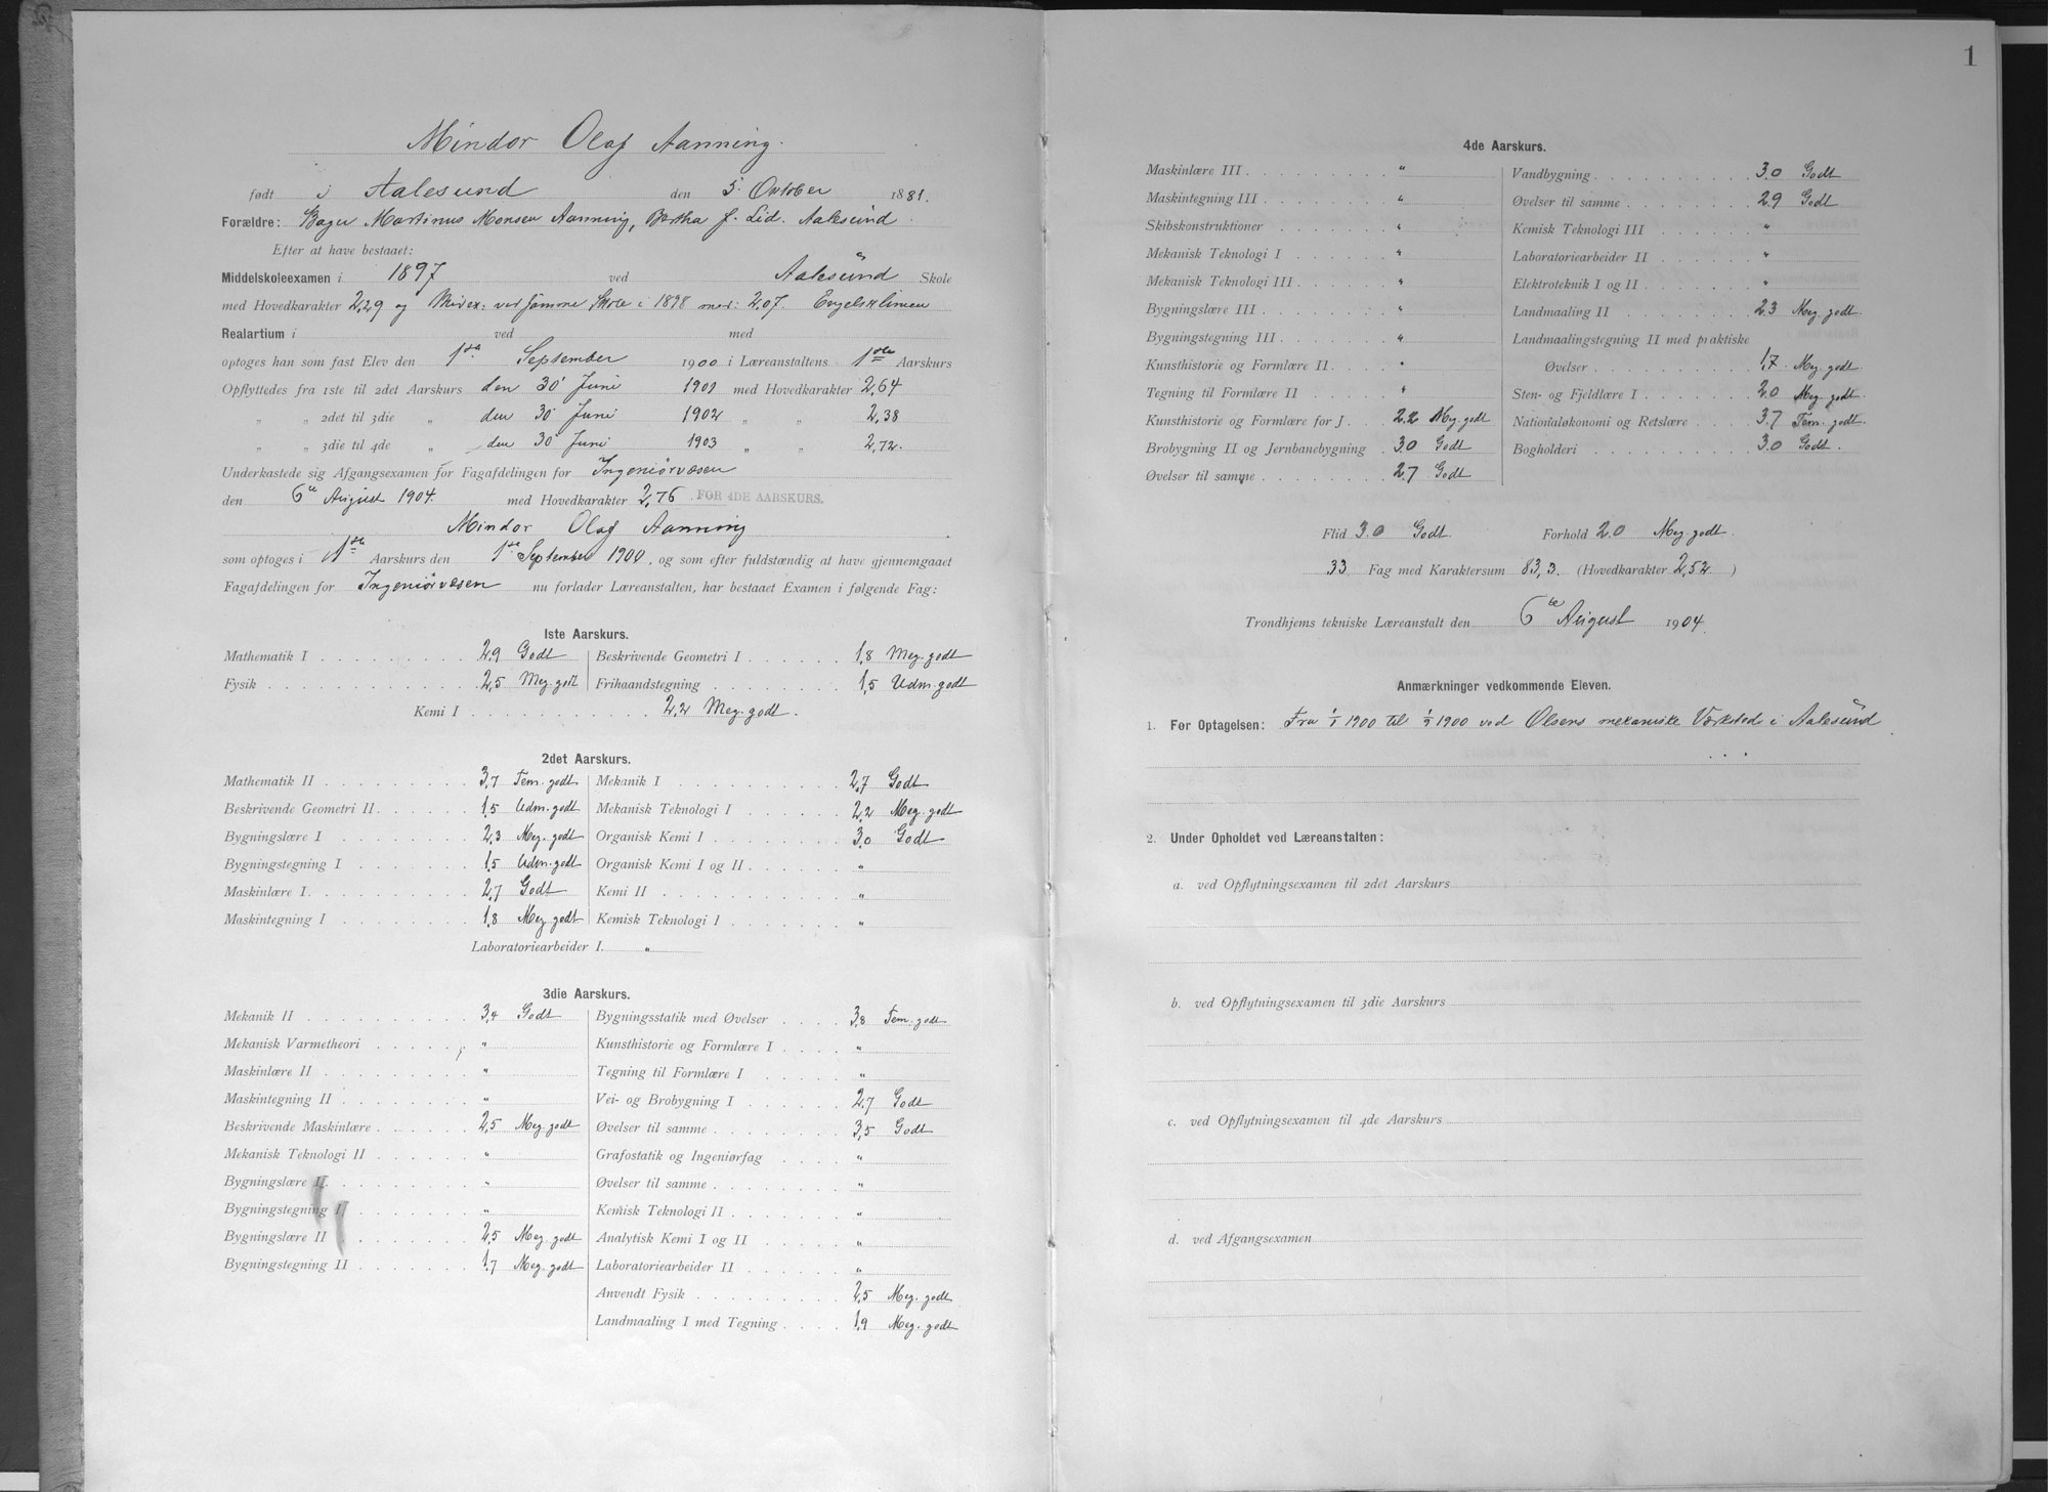 Mindor Olaf Aanning.
født i Aalesund den 5' Oktober 1881.
Forældre: Bager Martinus Monsen Aanning, Bertha f. Lid. Aalesund.
Efter at have bestaaet:
Middelskoleexamen i 1897 ved Aalesund Skole
med Hovedkarakter 2,29 og Midex: ved samme Skole i 1898 med: 2,07. Engelsklinien
Realartium i ved med
optoges han som fast Elev den 1ste September 1900 i Læreanstaltens 1ste Aarskurs
Opflyttedes fra 1ste til 2det Aarskurs den 30' Juni 1901 med Hovedkarakter 2,64
„ „ 2det til 3die „ den 30' Juni 1902 „ „ 2,38
„ „ 3die til 4de „ den 30' Juni 1903 „ „ 2,72.
Underkastede sig Afgangsexamen for Fagafdelingen for Ingeniørvæsen
den 6te August 1904. med Hovedkarakter 2,76 FOR 4DE AARSKURS.
Mindor Olaf Aanning
som optoges i 1ste Aarskurs den 1ste September 1900, og som efter fuldstændig at have gjennemgaaet
Fagafdelingen for Ingeniørvæsen nu forlader Læreanstalten, har bestaaet Examen i følgende Fag:
1ste Aarskurs.
Mathematik I 2,9 Godt Beskrivende Geometri I 1,8 Meg. godt
Fysik 2,5 Meg. godt Frihaandstegning 1,5 Udm. godt
Kemi I 2,2 Meg. godt.
2det Aarskurs.
Mathematik II 3,7 Tem. godt Mekanik I 2,7 Godt
Beskrivende Geometri II 1,5 Udm. godt Mekanisk Teknologi I 2,2 Meg. godt
Bygningslære I 2,3 Meg. godt Organisk Kemi I 3,0 Godt
Bygningstegning I 1,5 Udm. godt Organisk Kemi I og II "
Maskinlære I 2,7 Godt Kemi II "
Maskintegning I 1,8 Meg. godt Kemisk Teknologi I "
Laboratoriearbeider I. "
3die Aarskurs.
Mekanik II 3,4 Godt Bygningsstatik med Øvelser 3,8 Tem. godt
Mekanisk Varmetheori " Kunsthistorie og Formlære I "
Maskinlære II " Tegning til Formlære I "
Maskintegning II " Vei- og Brobygning I 2,7 Godt
Beskrivende Maskinlære 2,5 Meg. godt Øvelser til samme 3,5 Godt
Mekanisk Teknologi II " Grafostatik og Ingeniørfag "
Bygningslære II " Øvelser til samme "
Bygningstegning I " Kemisk Teknologi II "
Bygningslære II 2,5 Meg. godt Analytisk Kemi I og II "
Bygningstegning II 1,7 Meg. godt Laboratoriearbeider II "
Anvendt Fysik 2,5 Meg. godt
Landmaaling I med Tegning 1,9 Meg. godt
1
4de Aarskurs.
Maskinlære III " Vandbygning 3.0 Godt
Maskintegning III " Øvelser til samme 2.9 Godt
Skibskonstruktioner " Kemisk Teknologi III "
Mekanisk Teknologi I " Laboratoriearbeider II "
Mekanisk Teknologi III " Elektroteknik I og II "
Bygningslære III " Landmaaling II 2.3 Meg. godt.
Bygningstegning III " Landmaalingstegning II med praktiske
Kunsthistorie og Formlære II " Øvelser 1,7 Meg. godt.
Tegning til Formlære II " Sten- og Fjeldlære I 2.0 Meg. godt.
Kunsthistorie og Formlære for J 2.2 Meg. godt Nationaløkonomi og Retslære 3.7 Tem. godt.
Brobygning II og Jernbanebygning 3.0 Godt Bogholderi 3.0 Godt.
Øvelser til samme 2.7 Godt
Flid 3.0 Godt. Forhold 2.0 Meg. godt.
33 Fag med Karaktersum 83,3. (Hovedkarakter 2,52)
Trondhjems tekniske Læreanstalt den 6te August 1904.
Anmærkninger vedkommende Eleven.
1. Før Optagelsen: Fra 1/1 1900 til 1/9 1900 ved Olsens mekaniske Værksted i Aalesund
2. Under Opholdet ved Læreanstalten:
a. ved Opflytningsexamen til 2det Aarskurs
b. ved Opflytningsexamen til 3die Aarskurs
c. ved Opflytningsexamen til 4de Aarskurs
d. ved Afgangsexamen